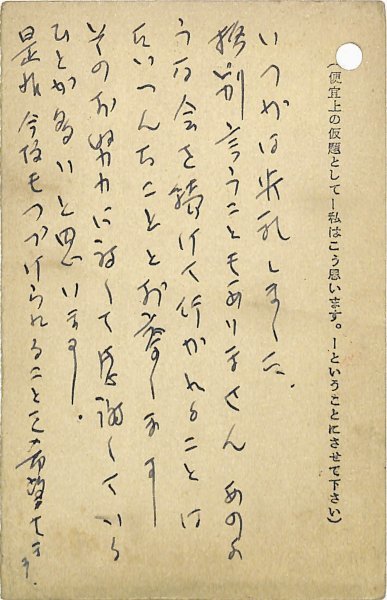 (便宜上の仮題として―私はこう思います。―ということにさせて下さい)
いつかは失礼しました、
格別言うこともありません あのよ
うな会を続けて行かれることは
たいへんなこととお察します
そのお努力に対して感謝している
ひとが多いと思います。
是非今後もつづけられることを希望します.